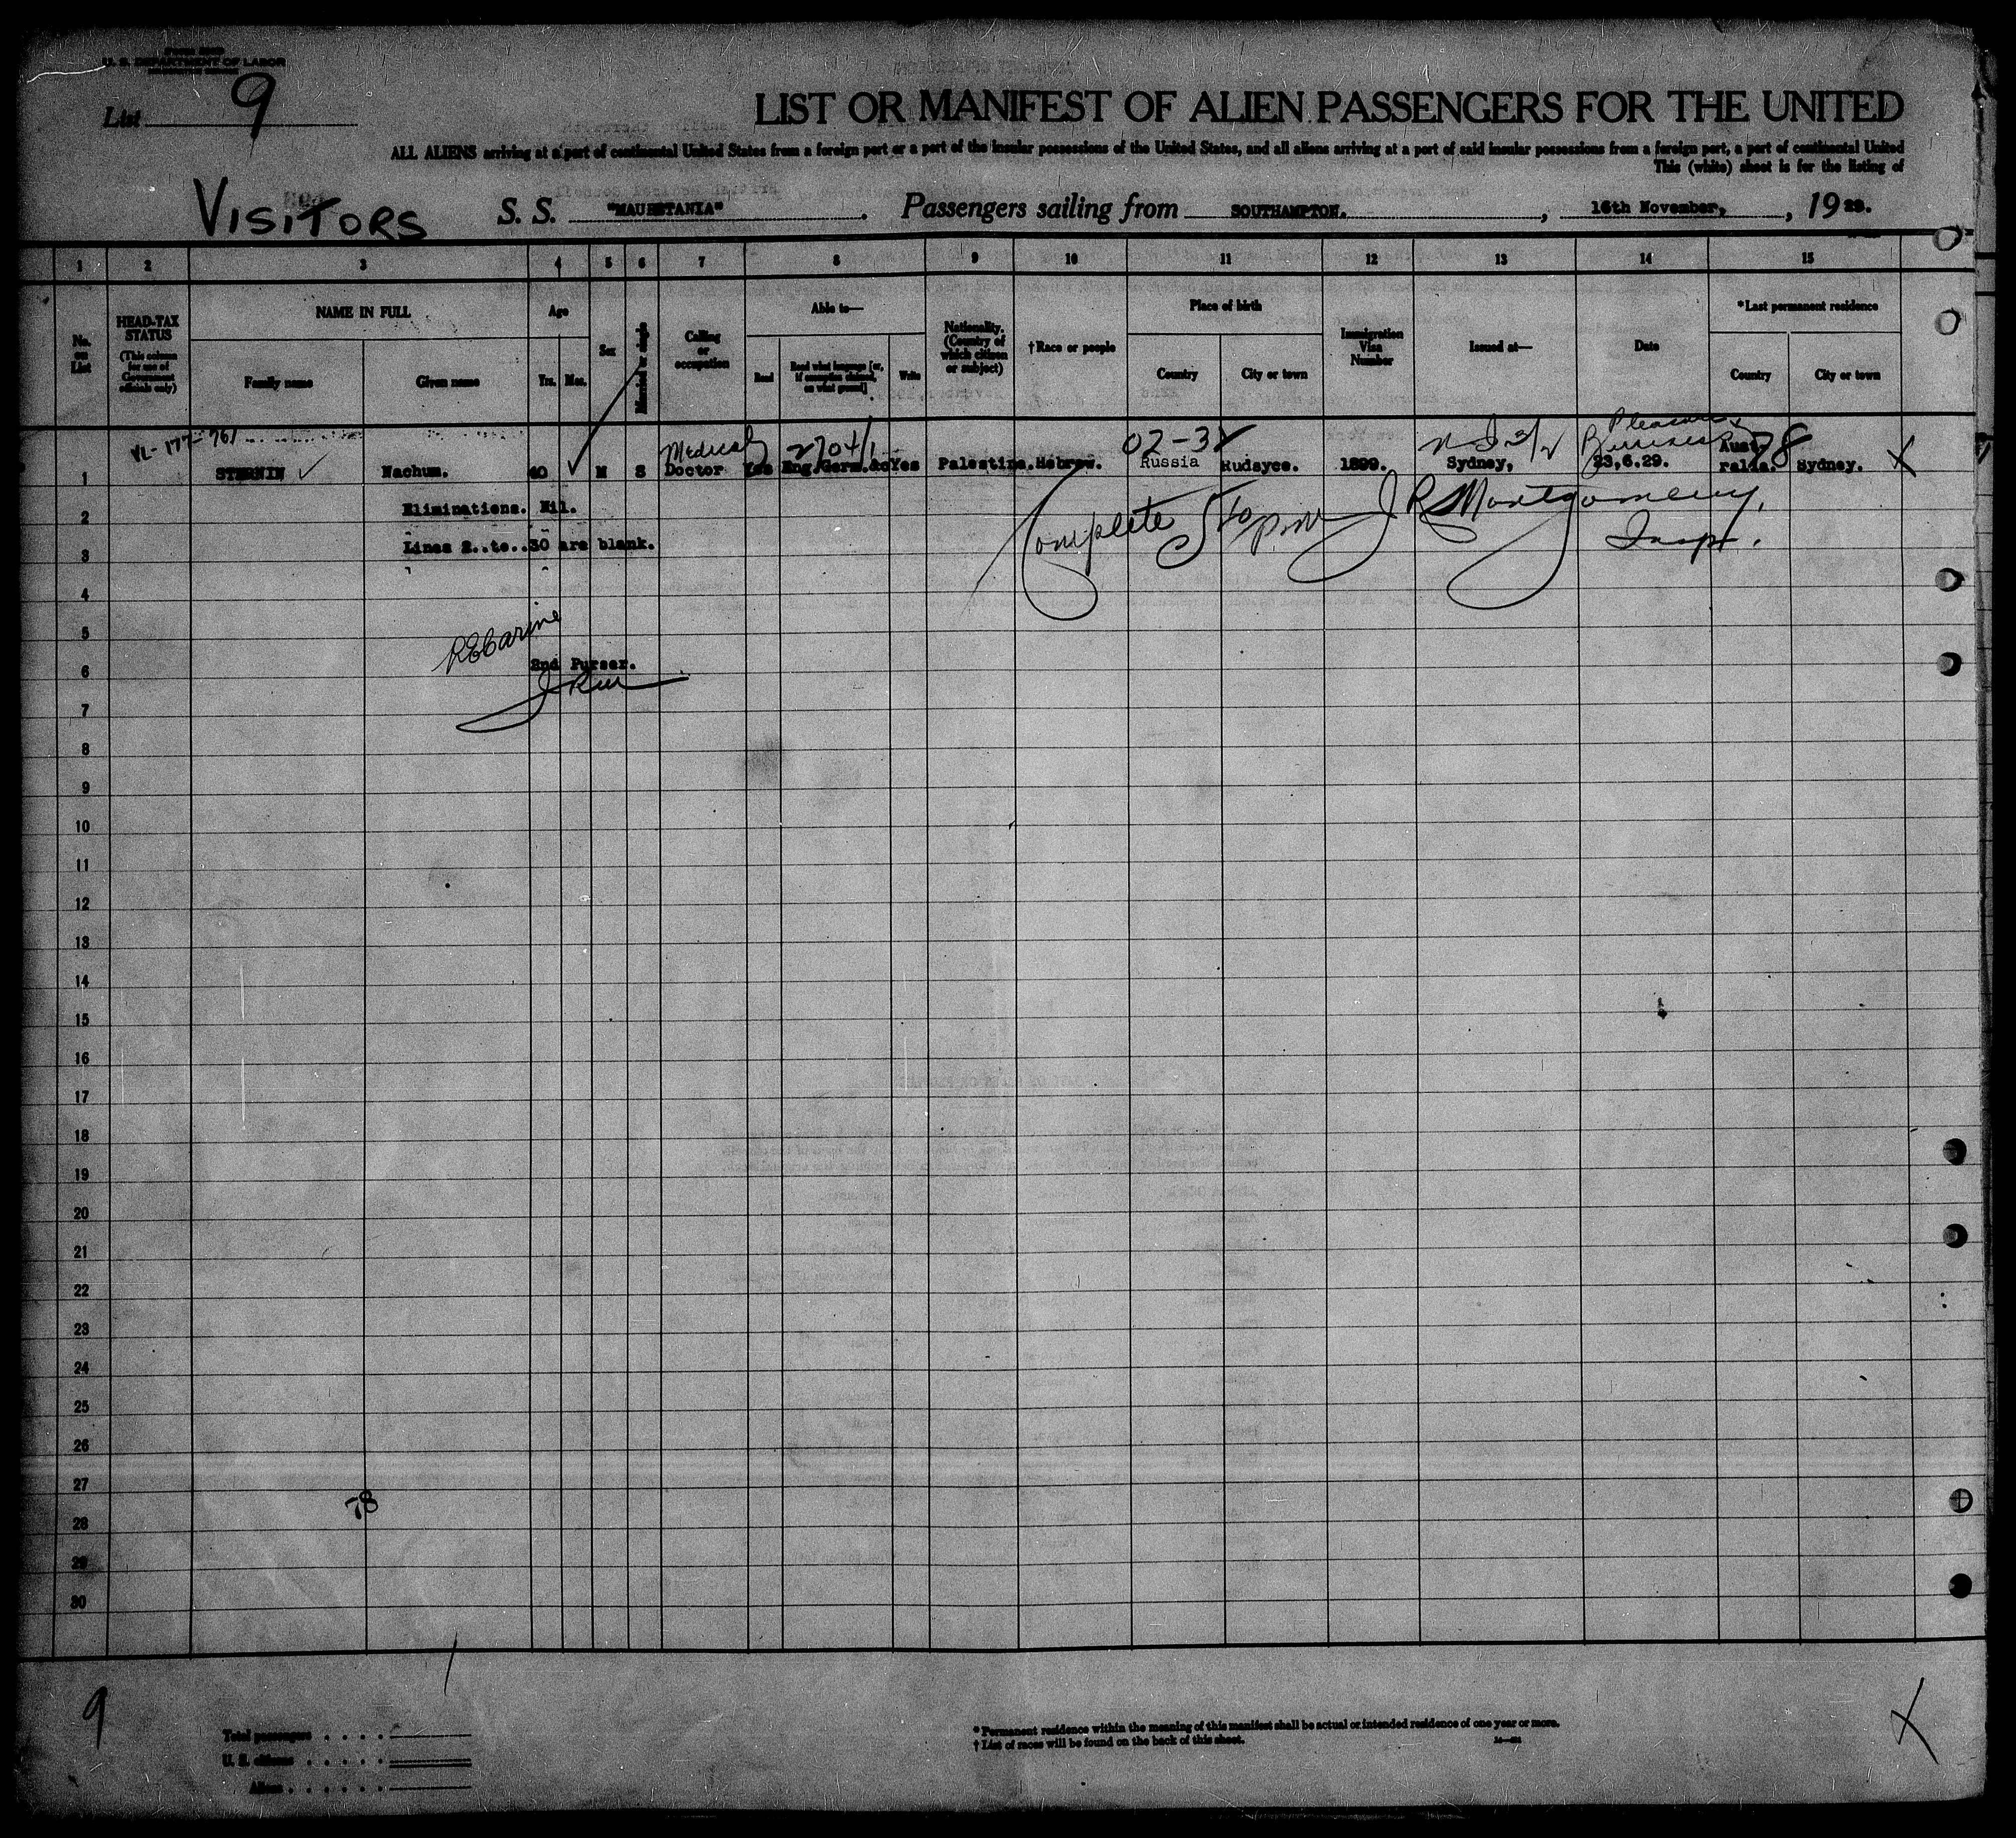 U. S. DEPARTMENT OF LABOR
List 9
LIST OR MANIFEST OF ALIEN PASSENGERS FOR THE UNITED
ALL ALIENS arriving at a port of continental United States from a foreign port or a port of the insular possessions of the United States, and all aliens arriving at a port of said insular possessions from a foreign port, a port of continental United
This (white) sheet is for the listing of
VISITORS S. S. "MAURETANIA" . Passengers sailing from SOUTHAMPTON. , 16th November, , 19 29.
1 2 3 4 5 6 7 8 9 10 11 12 13 14 15
No. on List
HEAD-TAX STATUS (This column for use of Government officials only)
NAME IN FULL
Family name Given name
Age
Yrs. Mos.
Sex
Married or single
Calling or occupation
Able to—
Read Read what language [or, if exemption claimed, on what ground] Write
Nationality. (Country of which citizen or subject)
†Race or people
Place of birth
Country City or town
Immigration Visa Number
Issued at—
Date
*Last permanent residence
Country City or town
VL-177-761 Medical 2704/1 02-3 Pleasure & Business 78
1 STERNIN ✓ Nachum. 40 ✓ M S Doctor Yes Eng.Germ.&c Yes Palestine. Hebrew. Russia Rudayce. 1899. Sydney, 23,6.29. Australia. Sydney. X
2 Eliminations. Nil.
3 Lines 2..to..30 are blank.
Complete J R Montgomery,
Insp.
4
5
6 2nd Purser.
7
8
9
10
11
12
13
14
15
16
17
18
19
20
21
22
23
24
25
26
27
78
28
29
30
9
X
Total passengers . . . .
U. S. citizens . . . . .
Aliens . . . . . .
* Permanent residence within the meaning of this manifest shall be actual or intended residence of one year or more.
† List of races will be found on the back of this sheet.